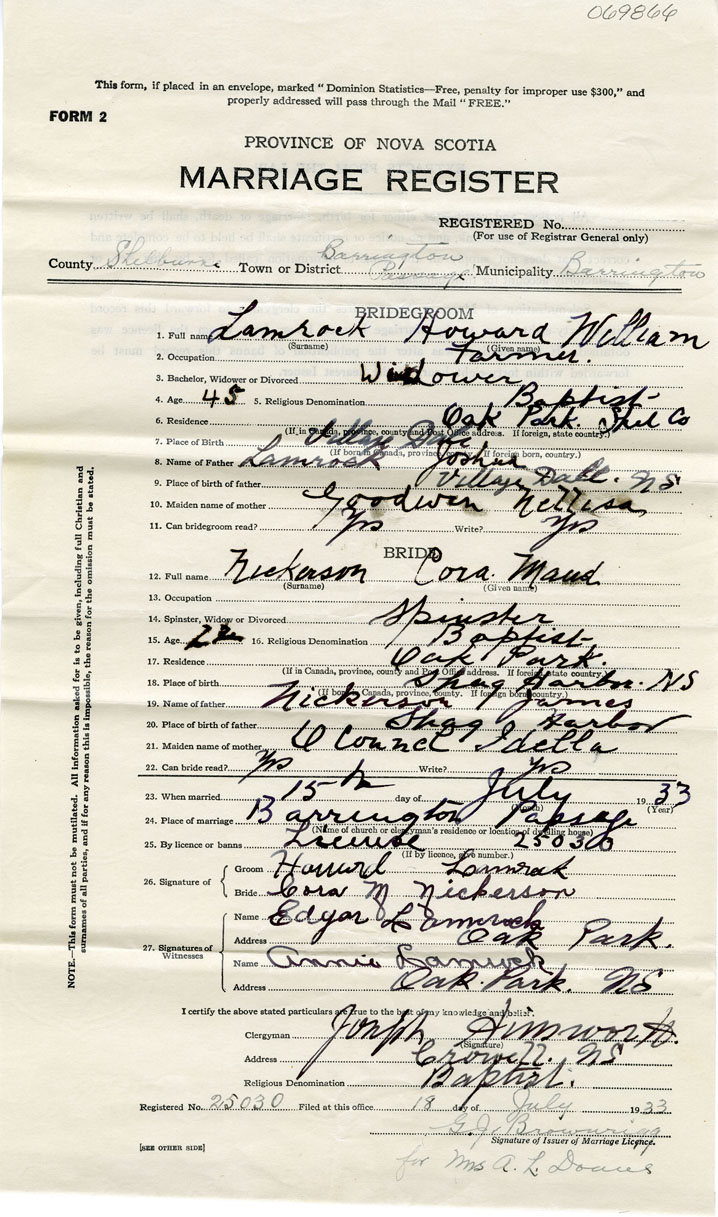 069866
This form, if placed in an envelope, marked "Dominion Statistics—Free, penalty for improper use $300," and
properly addressed will pass through the Mail "FREE."
FORM 2
PROVINCE OF NOVA SCOTIA
MARRIAGE REGISTER
REGISTERED No.
(For use of Registrar General only)
County Shelburne Town or District Barrington Passage Municipality Barrington
BRIDEGROOM
1. Full name Lamrock Howard William
(Surname) (Given name)
2. Occupation Farmer.
3. Bachelor, Widower or Divorced Widower
4. Age 45 5. Religious Denomination Baptist
6. Residence Oak Park. Shel Co
(If in Canada, province, county and Post Office address. If foreign, state country.)
7. Place of Birth Village
(If born in Canada, province, county. If foreign born, country.)
8. Name of Father Lamrock Joshua
9. Place of birth of father Village Dale. NS
10. Maiden name of mother Goodwin
11. Can bridegroom read? Yes Write? Yes
BRIDE
12. Full name Nickerson Cora. Maud
(Surname) (Given name)
13. Occupation
14. Spinster, Widow or Divorced Spinster
15. Age 16. Religious Denomination Baptist
17. Residence Oak Park.
(If in Canada, province, county and Post Office address. If foreign state country.)
18. Place of Birth Shag Harbor. NS
(If born in Canada, province, county. If foreign born, country.)
19. Name of father Nickerson James
20. Place of birth of father Shag Harbor
21. Maiden name of mother O Connel Idella
22. Can bride read? Yes Write? Yes
23. When married 15th day of July 1933
(Month) (Year)
24. Place of marriage Barrington Passage
(Name of church or clergyman's residence or location of dwelling house)
25. By licence or banns License 25030
(If by licence, give number.)
26. Signature of
Groom Howard Lamrock
Bride Cora M Nickerson
27. Signatures of Witnesses
Name Edgar Lamrock
Address Oak Park.
Name Annie Lamrock
Address Oak Park. NS
I certify the above stated particulars are true to the best of my knowledge and belief.
Clergyman Joseph
(Signature)
Address Crowell. NS
Religious Denomination Baptist.
Registered No. 25030 Filed at this office 18 day of July 1933
G.J. Brownrigg
Signature of Issuer of Marriage Licence.
for Mrs A. L. Doane
[SEE OTHER SIDE]
NOTE.—This form must not be mutilated. All information asked for is to be given, including full Christian and
surnames of all parties, and if for any reason this is impossible, the reason for the omission must be stated.